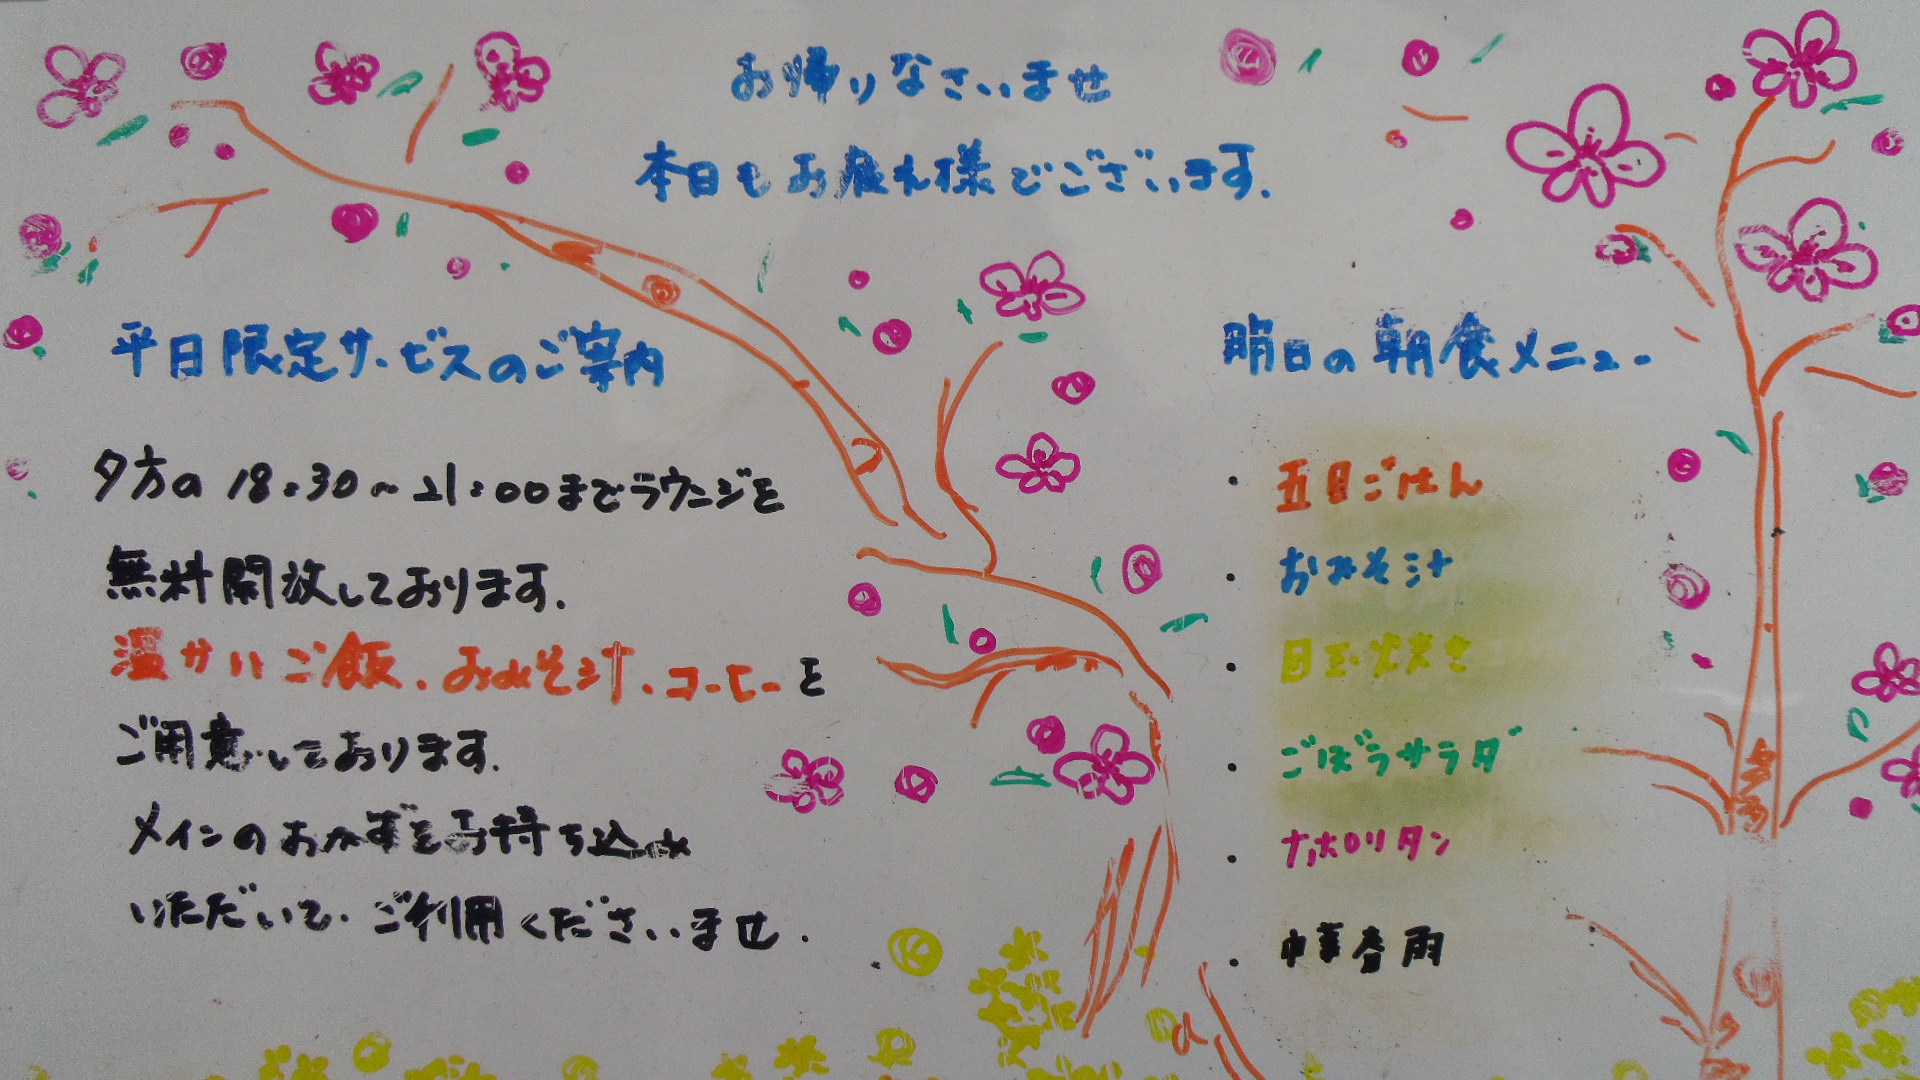 お帰りなさいませ
本日もお疲れ様でございます.
平日限定サービスのご案内
夕方の 18:30～21:00までラウンジを
無料開放しております.
温かいご飯.おみそ汁.コーヒーを
ご用意しております.
メインのおかずをお持ち込み
いただいて.ご利用くださいませ.
明日の朝食メニュー
・五目ごはん
・おみそ汁
・目玉焼き
・ごぼうサラダ
・ナポリタン
・中華春雨